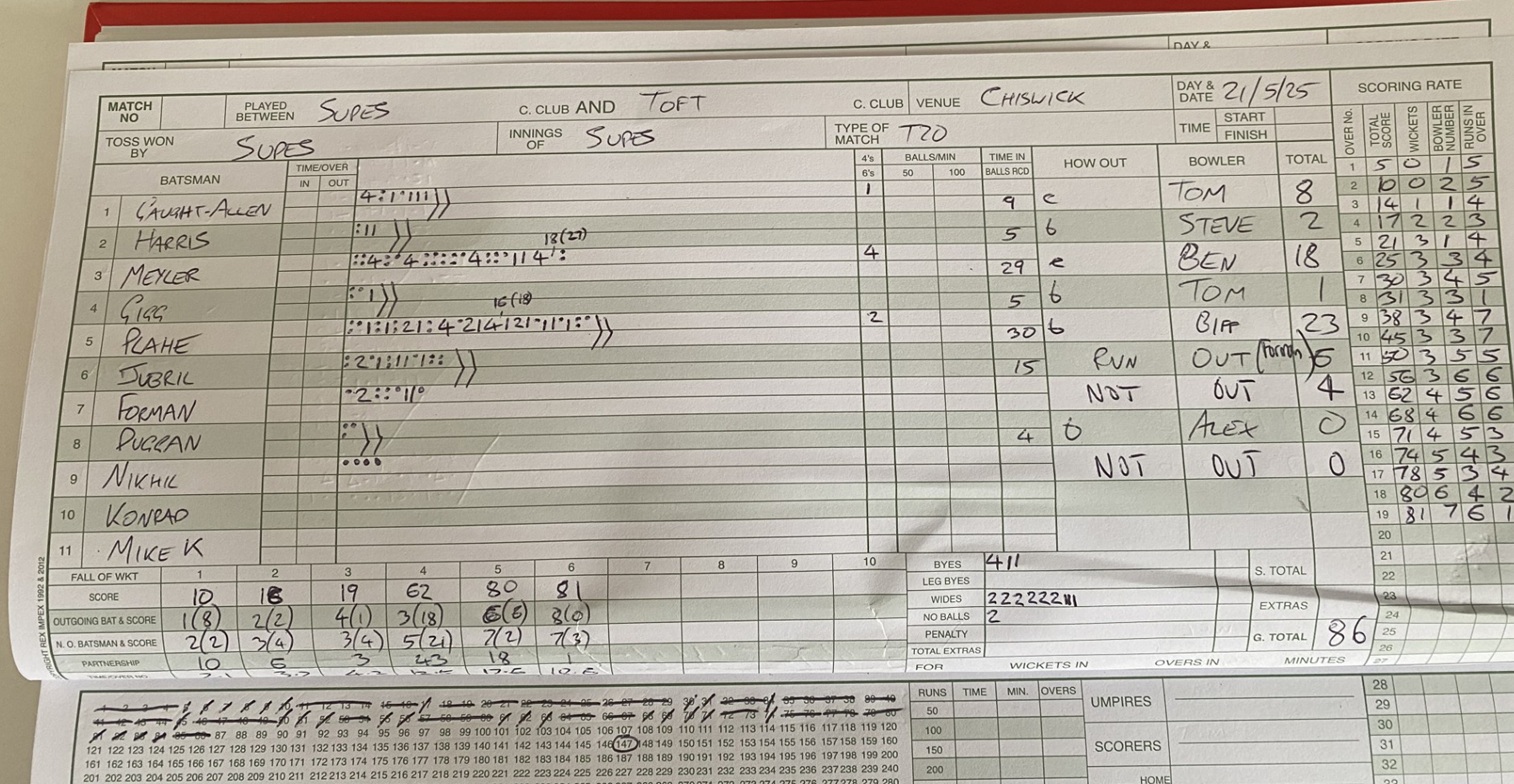 DAY &
MATCH NO PLAYED BETWEEN SUPES C. CLUB AND TOFT C. CLUB VENUE CHISWICK DAY & DATE 21/5/25 SCORING RATE
TOSS WON BY SUPES INNINGS OF SUPES TYPE OF MATCH T20 TIME START FINISH
OVER No. TOTAL SCORE WICKETS BOWLER NUMBER RUNS IN OVER
BATSMAN TIME/OVER IN OUT 4's 6's BALLS/MIN 50 100 TIME IN BALLS RCD HOW OUT BOWLER TOTAL
1 CAUGHT-ALLEN 1 9 c TOM 8
2 HARRIS 5 b STEVE 2
3 MEYLER 18(27) 4 29 c BEN 18
4 GIGG 5 b TOM 1
5 PLAHE 16(18) 2 30 b BIFF 23
6 JUBRIL 15 RUN OUT (Forman) 6
7 FORMAN NOT OUT 4
8 DUGGAN 4 b ALEX 0
9 NIKHIL NOT OUT 0
10 KONRAD
11 MIKE K
1 5 0 1 5
2 10 0 2 5
3 14 1 1 4
4 17 2 2 3
5 21 3 1 4
6 25 3 3 4
7 30 3 4 5
8 31 3 3 1
9 38 3 4 7
10 45 3 3 7
11 50 3 5 5
12 56 3 6 6
13 62 4 5 6
14 68 4 6 6
15 71 4 5 3
16 74 5 4 3
17 78 5 3 4
18 80 6 4 2
19 81 7 6 1
20
21
22
23
24
25
26
27
FALL OF WKT 1 2 3 4 5 6 7 8 9 10
SCORE 10 16 19 62 80 81
OUTGOING BAT & SCORE 1(8) 2(2) 4(1) 3(18) 6(6) 8(0)
N. O. BATSMAN & SCORE 2(2) 3(4) 3(4) 5(21) 7(2) 7(3)
PARTNERSHIP 10 6 3 43 18 1
BYES 411
LEG BYES
WIDES 222222111
NO BALLS 2
PENALTY
TOTAL EXTRAS
S. TOTAL
EXTRAS
G. TOTAL 86
FOR WICKETS IN OVERS IN MINUTES
RUNS TIME MIN. OVERS
50
100
150
200
UMPIRES
SCORERS
HOME
28
29
30
31
87 88 89 90 91 92 93 94 95 96 97 98 99 100 101 102 103 104 105 106 107 108 109 110 111 112 113 114 115 116 117 118 119 120
121 122 123 124 125 126 127 128 129 130 131 132 133 134 135 136 137 138 139 140 141 142 143 144 145 146 147 148 149 150 151 152 153 154 155 156 157 158 159 160
161 162 163 164 165 166 167 168 169 170 171 172 173 174 175 176 177 178 179 180 181 182 183 184 185 186 187 188 189 190 191 192 193 194 195 196 197 198 199 200
201 202 203 204 205 206 207 208 209 210 211 212 213 214 215 216 217 218 219 220 221 222 223 224 225 226 227 228 229 230 231 232 233 234 235 236 237 238 239 240